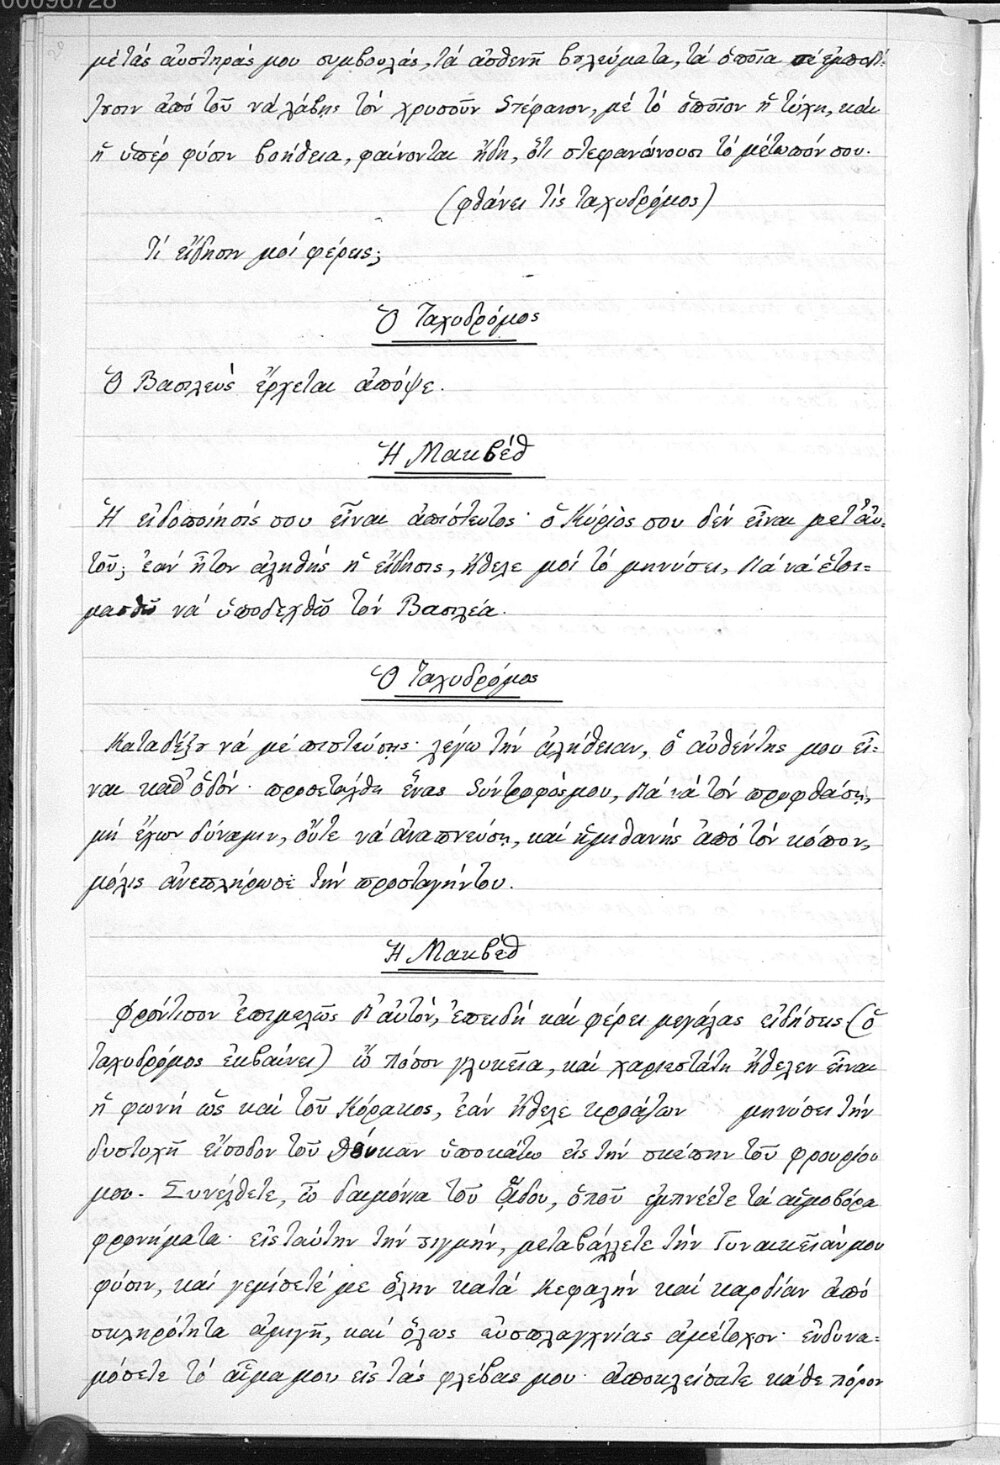 00096728
μέ τάς αὐστηράς μου συμβουλάς, τά ἀσθενῆ βουλεύματα, τά ὁποῖα σέ ἐμποδί-
ζουσιν ἀπό τοῦ νά λάβῃς τόν χρυσοῦν Στέφανον, μέ τό ὁποῖον ἡ τύχη, καί
ἡ ὑπέρ φύσιν βοήθεια, φαίνονται ἤδη, ὅτι στεφανώνουσι τό μέτωπόν σου.
(φθάνει τίς ταχυδρόμος)
Τί εἴδησιν μοί φέρεις;
Ὁ Ταχυδρόμος
Ὁ Βασιλεύς ἔρχεται ἀπόψε.
Ἡ Μακβέθ
Ἡ εἰδοποίησίς σου εἶναι ἀπίστευτος· ὁ Κύριός σου δέν εἶναι μετ' αὐ-
τοῦ; ἐάν ἦτον ἀληθής ἡ εἴδησις, ἤθελε μοί τό μηνύσει, διά νά ἑτοι=
μασθῶ νά ὑποδεχθῶ τόν Βασιλέα.
Ὁ Ταχυδρόμος
Καταδέξου νά μέ πιστεύσῃς· λέγω τήν ἀλήθειαν, ὁ αὐθέντης μου εἶ=
ναι καθ' ὁδόν· προσετάχθη ἕνας Σύντροφός μου, διά νά τόν προφθάσῃ,
μή ἔχων δύναμιν, οὔτε νά ἀναπνεύσῃ, καί ἡμιθανής ἀπό τόν κόπον,
μόλις ἀνεπλήρωσε τήν προσταγήν του.
Ἡ Μακβέθ
Φρόντισον ἐπιμελῶς δι' αὐτόν, ἐπειδή καί φέρει μεγάλας εἰδήσεις (ὁ
ταχυδρόμος ἐκβαίνει) ὤ πόσον γλυκεῖα, καί χαριεστάτη ἤθελεν εἶναι
ἡ φωνή ὥς καί τοῦ Κόρακος, ἐάν ἤθελε κράζων μηνύσει τήν
δυστυχῆ εἴσοδον τοῦ Δούνκαν ὑποκάτω εἰς τήν σκέπην τοῦ φρουρίου
μου. Συνέλθετε, ὦ δαιμόνια τοῦ ᾅδου, ὁποῦ ἐμπνέετε τά αἱμοβόρα
φρονήματα· εἰς ταύτην τήν στιγμήν, μεταβάλλετε τήν Γυναικείαν μου
φύσιν, καί γεμίσετέ με ὅλην κατά κεφαλήν καί καρδίαν ἀπό
σκληρότητα ἀμιγῆ, καί ὅλως εὐσπλαγχνίας ἀμέτοχον· ἐνδυνα=
μόσετε τό αἷμα μου εἰς τάς φλέβας μου· ἀποκλείσατε κάθε πόρον